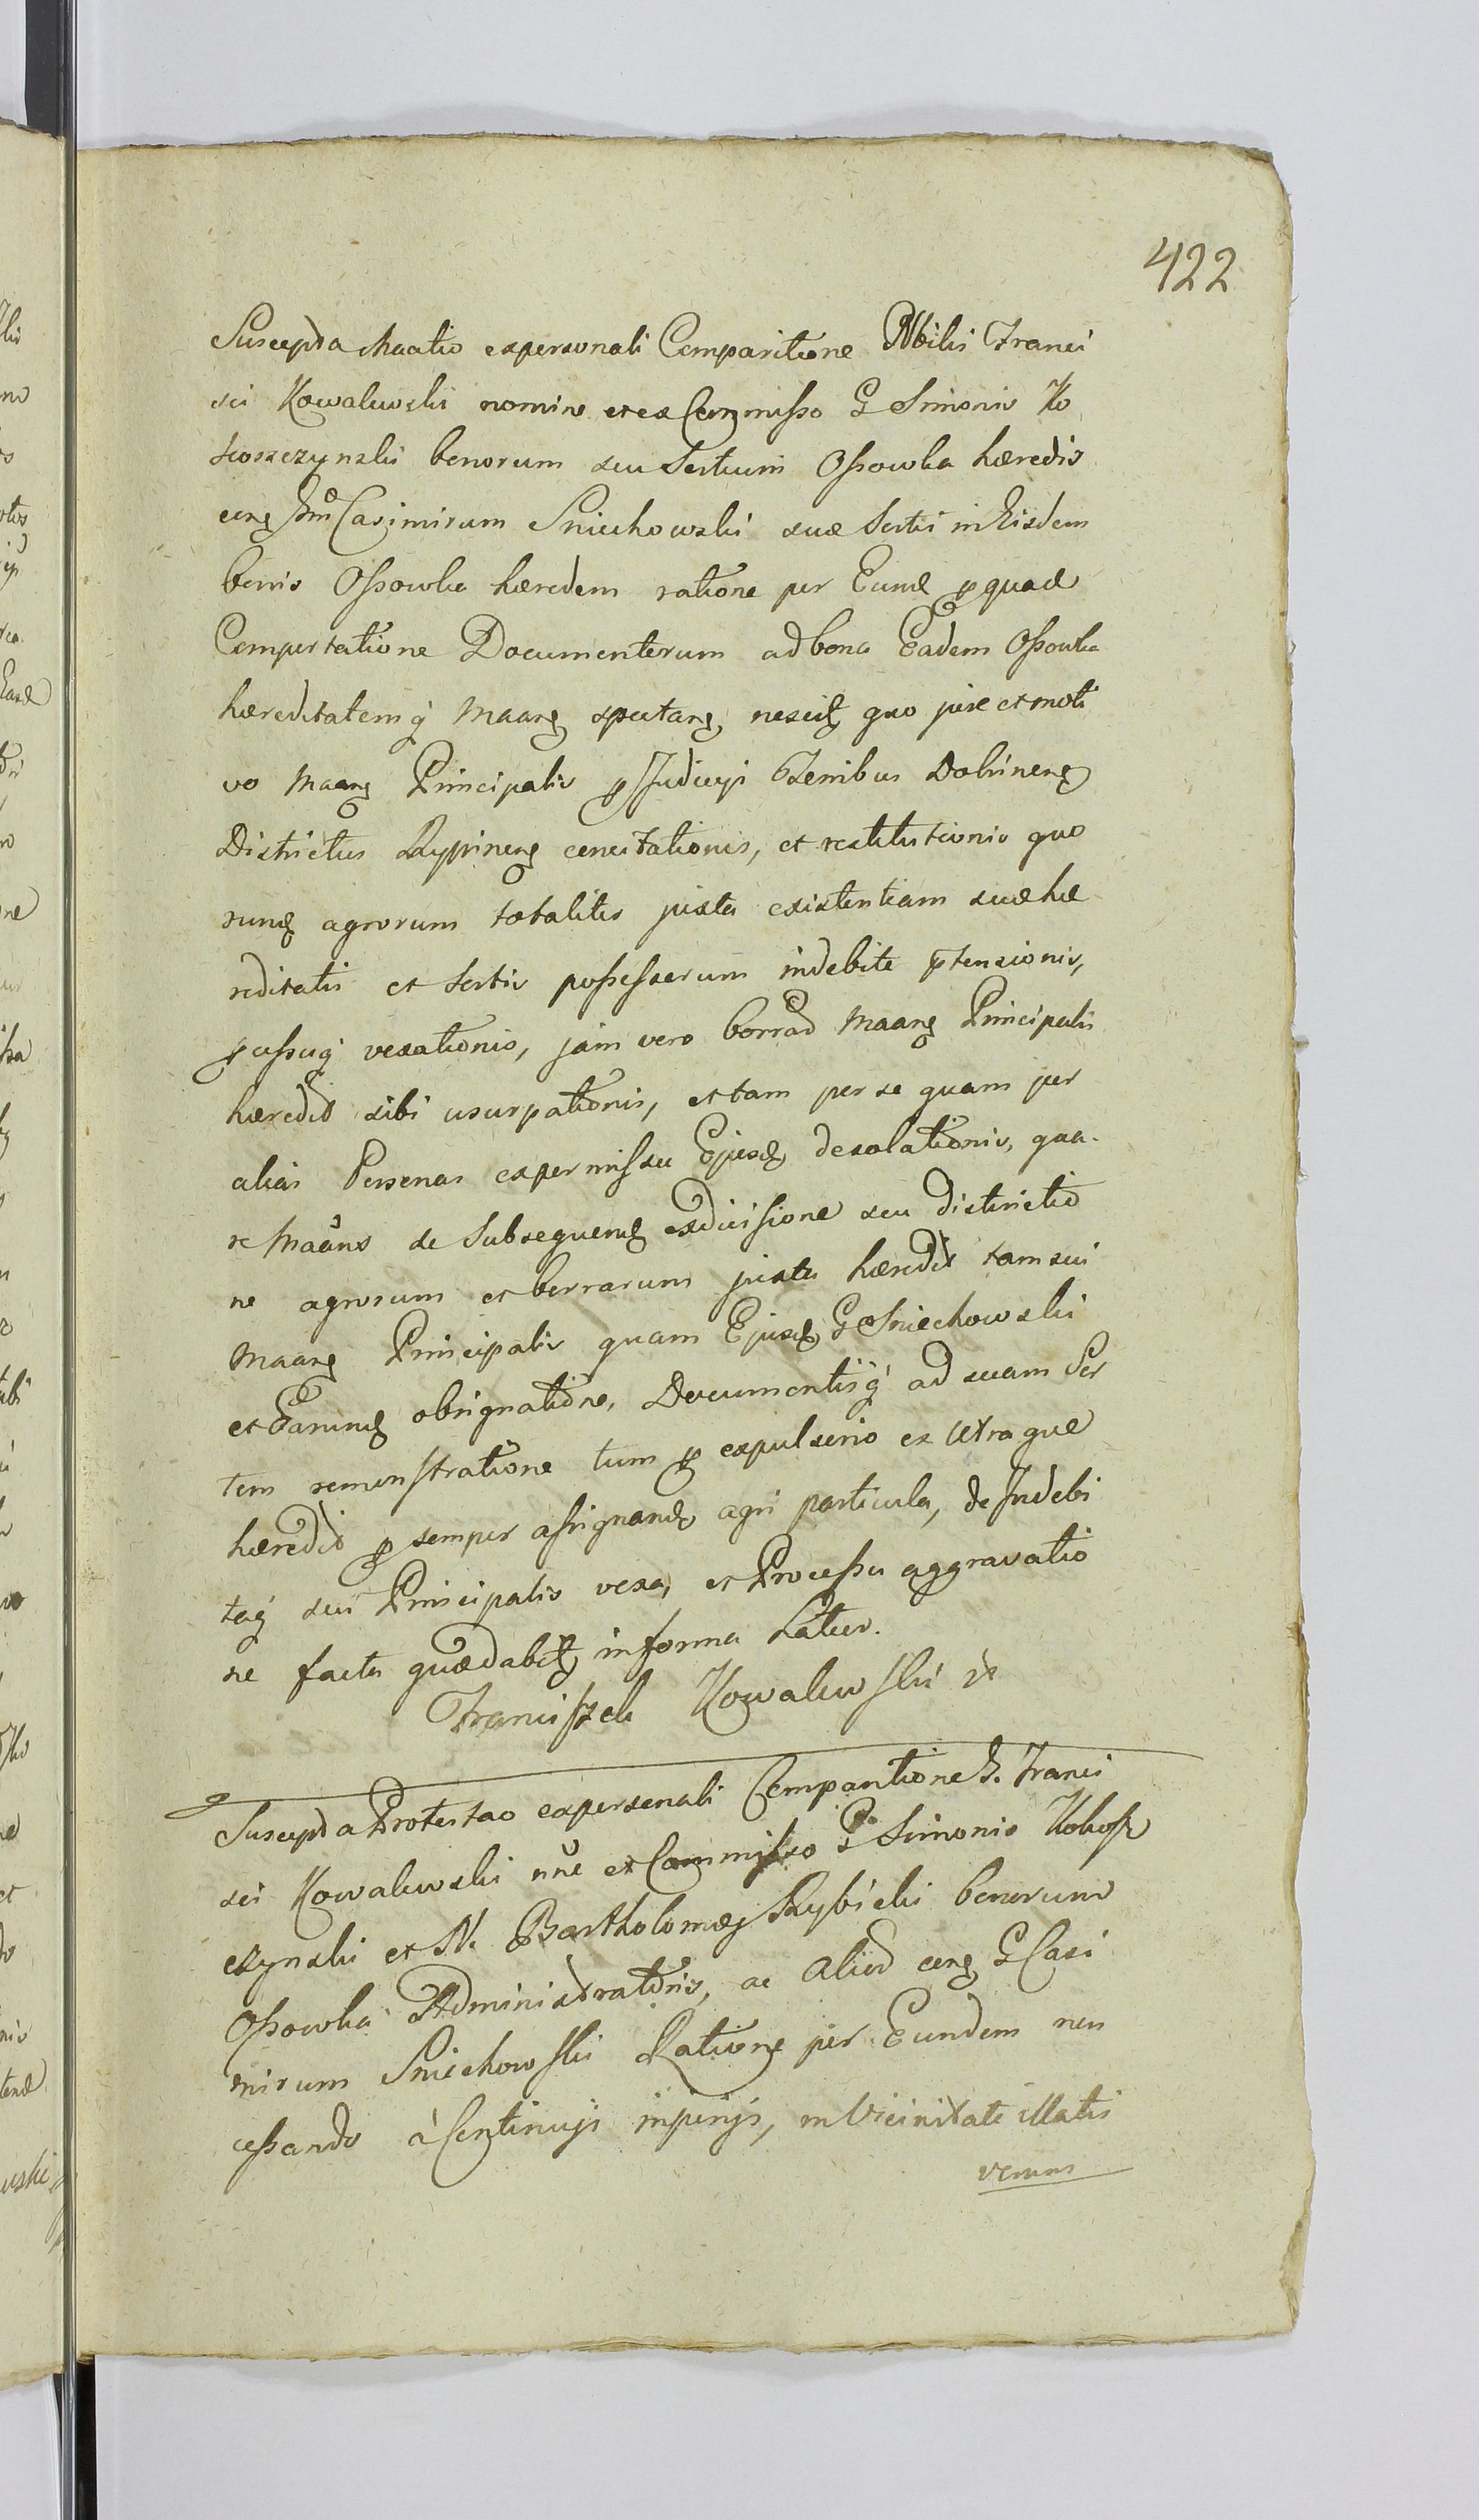 422
Suscepta Maatio ex personali Comparitione Nbilis Franci
sci Kowalewski nomine et ex Commisso G Simonis Ko
koszczynski bonorum seu Sortium Ossowka hæredis
cong Gnm Casimirum Sniechowski suæ Sortis in Eisdem
bonis Ossowka hæredem ratione per Eund pquad
Comportatione Documentorum ad bona Eadem Ossowka
hæreditatemq Maang spectang nescit quo jure et moti
vo Maang Principalis p Judicyi Terribus Dobrineng
Districtus Rypineng concitationis, et restitutionis quo
rund agrorum totaliter juxta existentiam suæ hæ
reditatis et Sortis possessorum indebite ptensionis,
pcessuq vexationis, jam vero borrad Maang Principalis
hæredit sibi usurpationis, et tam per se quam per
alias Personas ex permissu Ejusd desolationis, qua-
re Maans de Subsequend exdivisione seu distinctio
ne agrorum et borrarum juxta hæredit tam sui
Maang Principalis quam Ejusd G Sniechowski
et Earund obsignatione, Documentisq ad suam Sor
tem remonstratione tum p expulsorio ex utraque
hæredit p semper assignand agri particula, de Indebi
taq sui Principalis vexa, et Processu aggravatio
ne facta quædabit in forma Latior.
Franciszek Kowalewski
Suscepta Protestao ex personali Comparitione G. Franci
sci Kowalewski nne et Commisso G Simonis Kokosz
czynski et N. Bartholomæj Rybicki bonorum
Ossowka Administratoris, ac aliod cong G Casi
mirum Sniechowski Ratione per Eundem non
cessando à Continujs injurijs, in Vicinitate illatis
verum